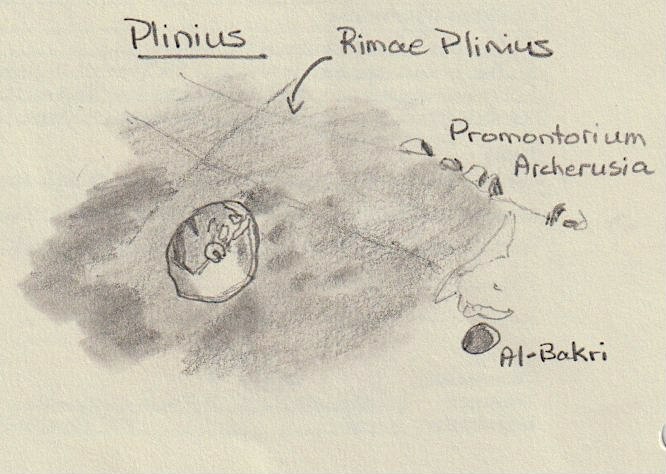 Plinius
Rimae Plinius
Promontorium
Archerusia
Al-Bakri